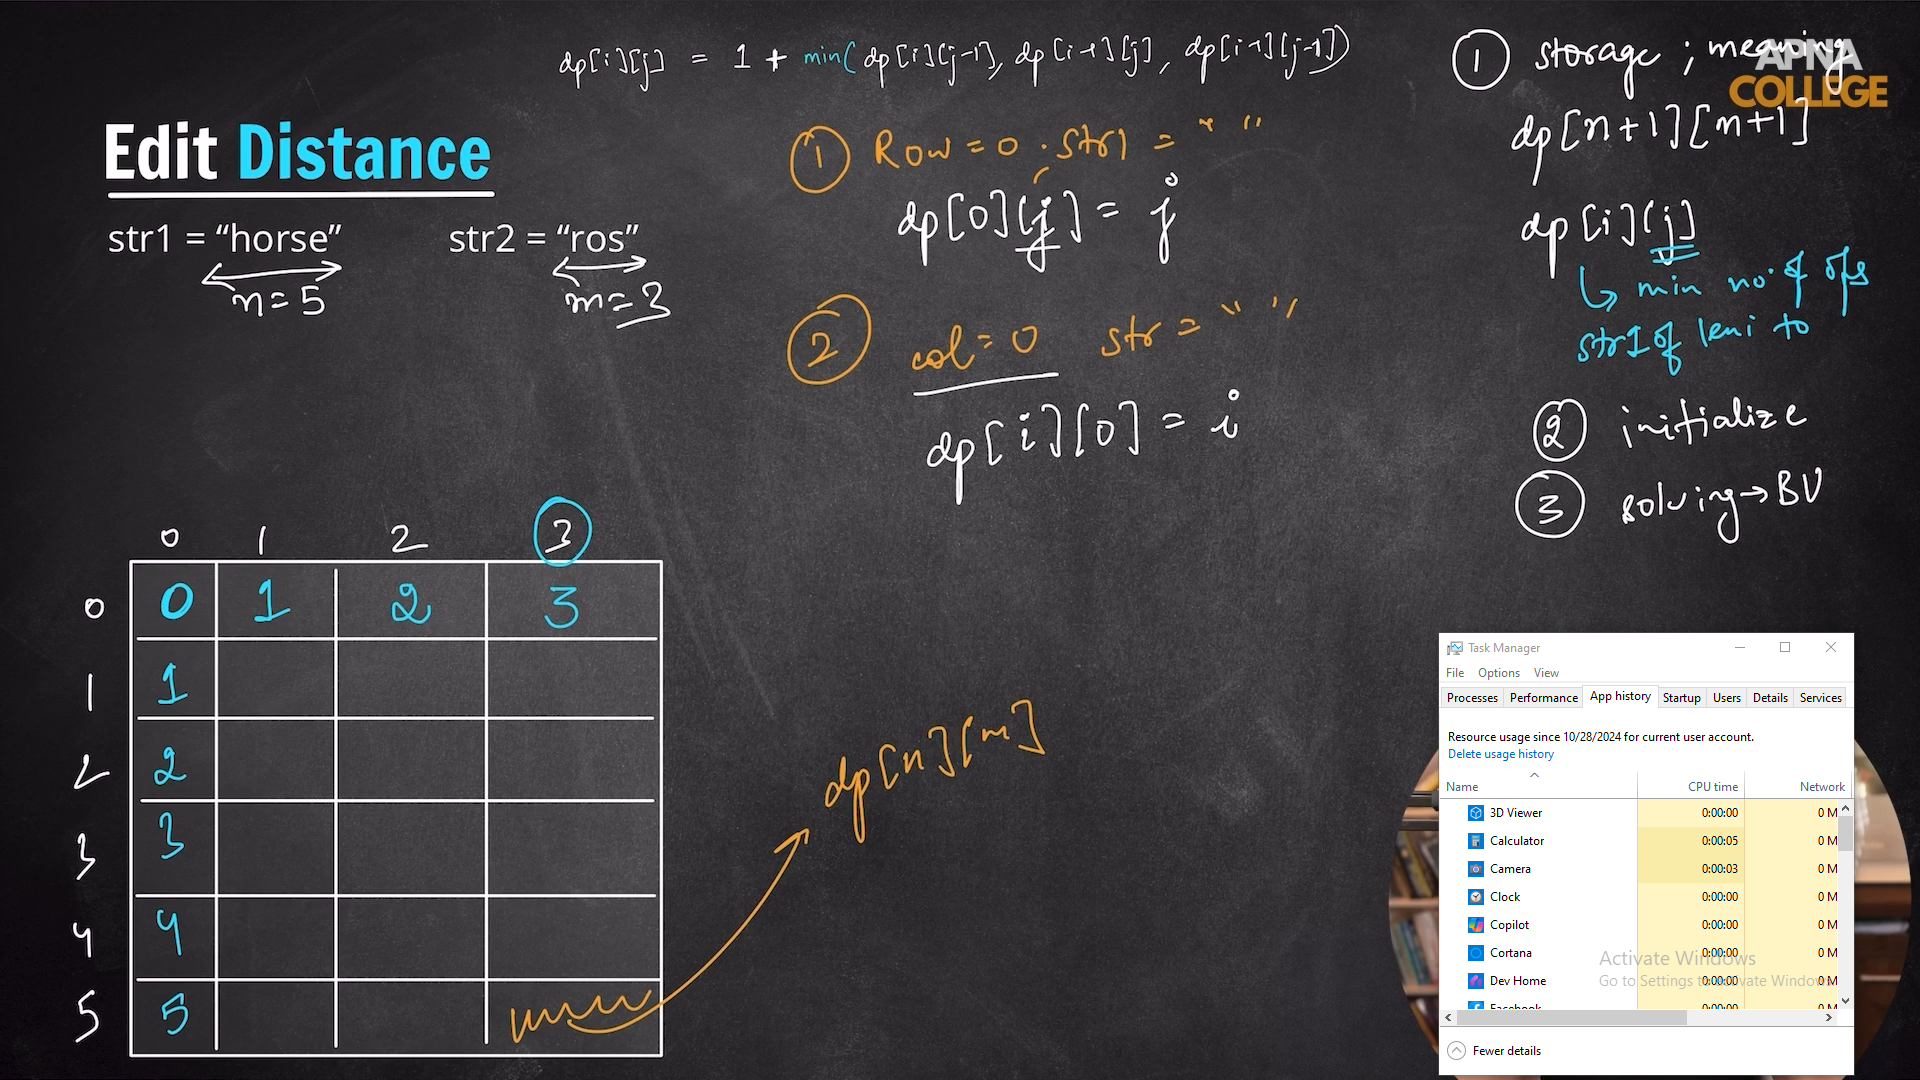 dp[i][j] = 1 + min(dp[i][j-1], dp[i-1][j], dp[i-1][j-1])
APNA
COLLEGE
Edit Distance
str1 = “horse”
n = 5
str2 = “ros”
m = 3
1 Row = 0 . str1 = " "
dp[0][j] = j
2 col = 0 str = " "
dp[i][0] = i
1 storage ; meaning
dp[n+1][m+1]
dp[i][j]
min no. of ops
str1 of len i to
2 initialize
3 solving → BU
0 1 2 3
0 0 1 2 3
1 1
2 2
3 3
4 4
5 5
dp[n][m]
Task Manager
File Options View
Processes Performance App history Startup Users Details Services
Resource usage since 10/28/2024 for current user account.
Delete usage history
Name CPU time Network
3D Viewer 0:00:00 0 M
Calculator 0:00:05 0 M
Camera 0:00:03 0 M
Clock 0:00:00 0 M
Copilot 0:00:00 0 M
Cortana 0:00:00 0 M
Dev Home 0:00:00 0 M
Facebook 0:00:00 0 M
Activate Windows
Go to Settings to activate Windows.
Fewer details